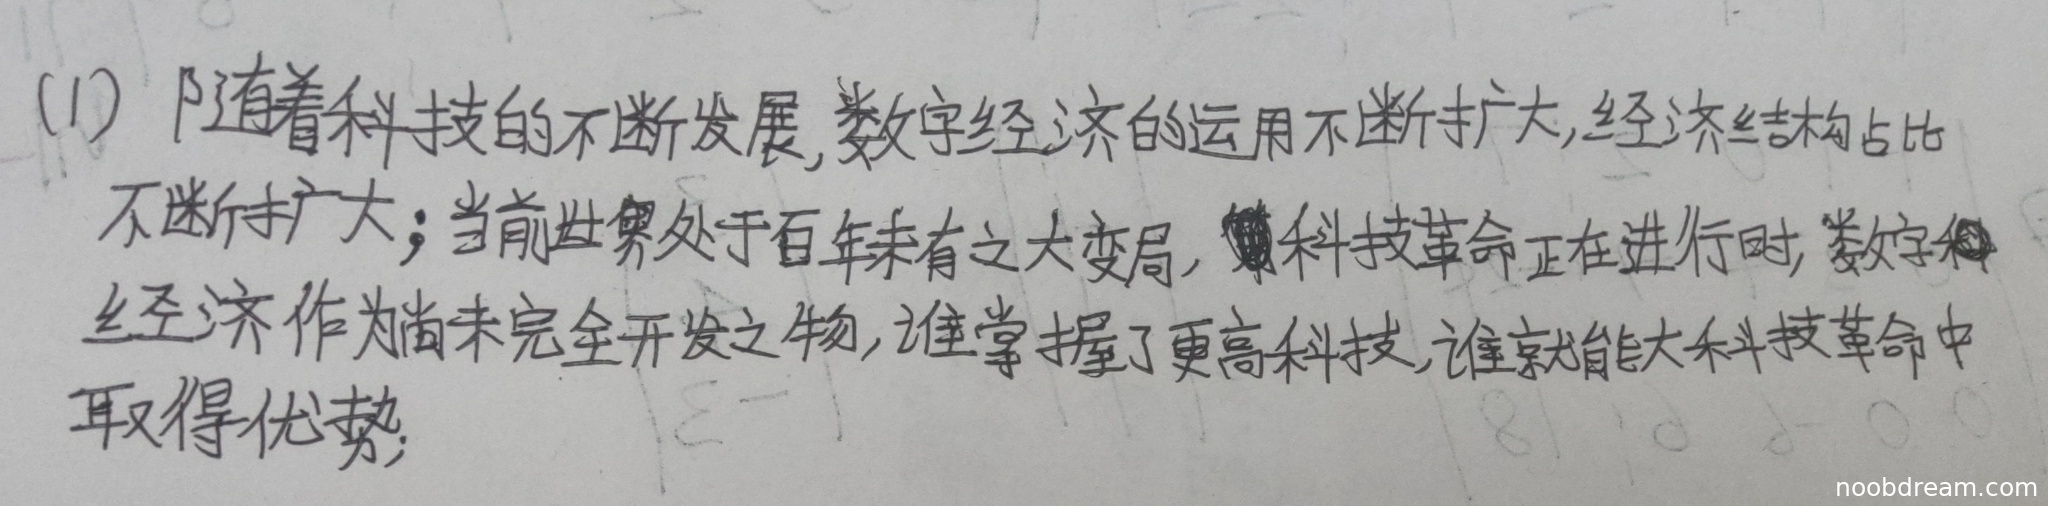 (1) 随着科技的不断发展,数字经济的运用不断扩大,经济结构占比
不断扩大;当前世界处于百年未有之大变局,科技革命正在进行时,数字
经济作为尚未完全开发之物,谁掌握了更高科技,谁就能大科技革命中
取得优势;
noobdream.com